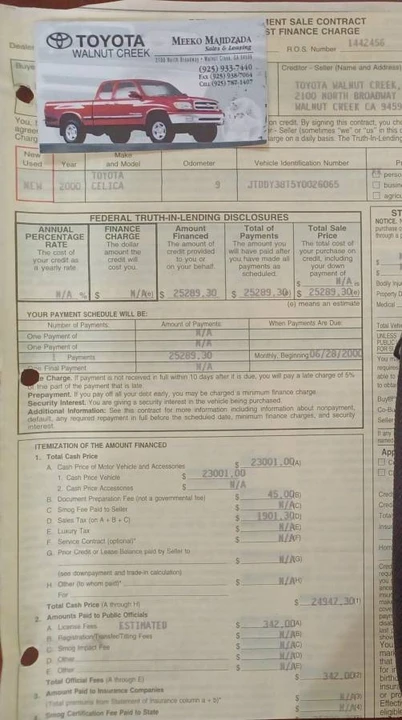 ENT SALE CONTRACT
ST FINANCE CHARGE
Dealer
R.O.S. Number 1442456
TOYOTA
WALNUT CREEK
MEEKO MAJIDZADA
Sales & Leasing
2100 North Broadway • Walnut Creek, CA 94596
(925) 933-7440
FAX (925) 938-7064
CELL (925) 787-1407
Buye
Creditor - Seller (Name and Address)
TOYOTA WALNUT CREEK,
2100 NORTH BROADWAY
WALNUT CREEK CA 9459
You, t
on credit. By signing this contract, you cho
agree
r - Seller (sometimes "we" or "us" in this c
Charg
arge on a daily basis. The Truth-In-Lending
New
Used
Year
Make
and Model
Odometer
Vehicle Identification Number
NEW
2000
TOYOTA
CELICA
9
JTDDY38T5Y0026065
perso
busin
agricu
FEDERAL TRUTH-IN-LENDING DISCLOSURES
ANNUAL PERCENTAGE RATE
The cost of your credit as a yearly rate.
N/A %
FINANCE CHARGE
The dollar amount the credit will cost you.
$ N/A(e)
Amount Financed
The amount of credit provided to you or on your behalf.
$ 25289.30
Total of Payments
The amount you will have paid after you have made all payments as scheduled.
$ 25289.30(e)
Total Sale Price
The total cost of your purchase on credit, including your down payment of
$ N/A is
$ 25289.30(e)
(e) means an estimate
YOUR PAYMENT SCHEDULE WILL BE:
Number of Payments:
Amount of Payments:
When Payments Are Due:
One Payment of
N/A
One Payment of
N/A
1 Payments
25289.30
Monthly, Beginning 06/28/2000
One Final Payment
N/A
e Charge. If payment is not received in full within 10 days after it is due, you will pay a late charge of 5%
of the part of the payment that is late.
Prepayment. If you pay off all your debt early, you may be charged a minimum finance charge.
Security Interest. You are giving a security interest in the vehicle being purchased.
Additional Information: See this contract for more information including information about nonpayment,
default, any required repayment in full before the scheduled date, minimum finance charges, and security
interest.
ITEMIZATION OF THE AMOUNT FINANCED
1. Total Cash Price
A. Cash Price of Motor Vehicle and Accessories $ 23001.00(A)
1. Cash Price Vehicle $ 23001.00
2. Cash Price Accessories $ N/A
B. Document Preparation Fee (not a governmental fee) $ 45.00(B)
C. Smog Fee Paid to Seller $ N/A(C)
D. Sales Tax (on A + B + C) $ 1901.30(D)
E. Luxury Tax $ N/A(E)
F. Service Contract (optional)* $ N/A(F)
G. Prior Credit or Lease Balance paid by Seller to
$ N/A(G)
(see downpayment and trade-in calculation)
H. Other (to whom paid)* $ N/A(H)
For
Total Cash Price (A through H) $ 24947.30(1)
2. Amounts Paid to Public Officials
A. License Fees ESTIMATED $ 342.00(A)
B. Registration/Transfer/Titling Fees $ N/A(B)
C. Smog Impact Fee $ N/A(C)
D. Other $ N/A(D)
E. Other $ N/A(E)
Total Official Fees (A through E) $ 342.00(2)
3. Amount Paid to Insurance Companies
(Total premiums from Statement of Insurance column a + b)* $ N/A(3)
4. Smog Certification Fee Paid to State $ N/A(4)